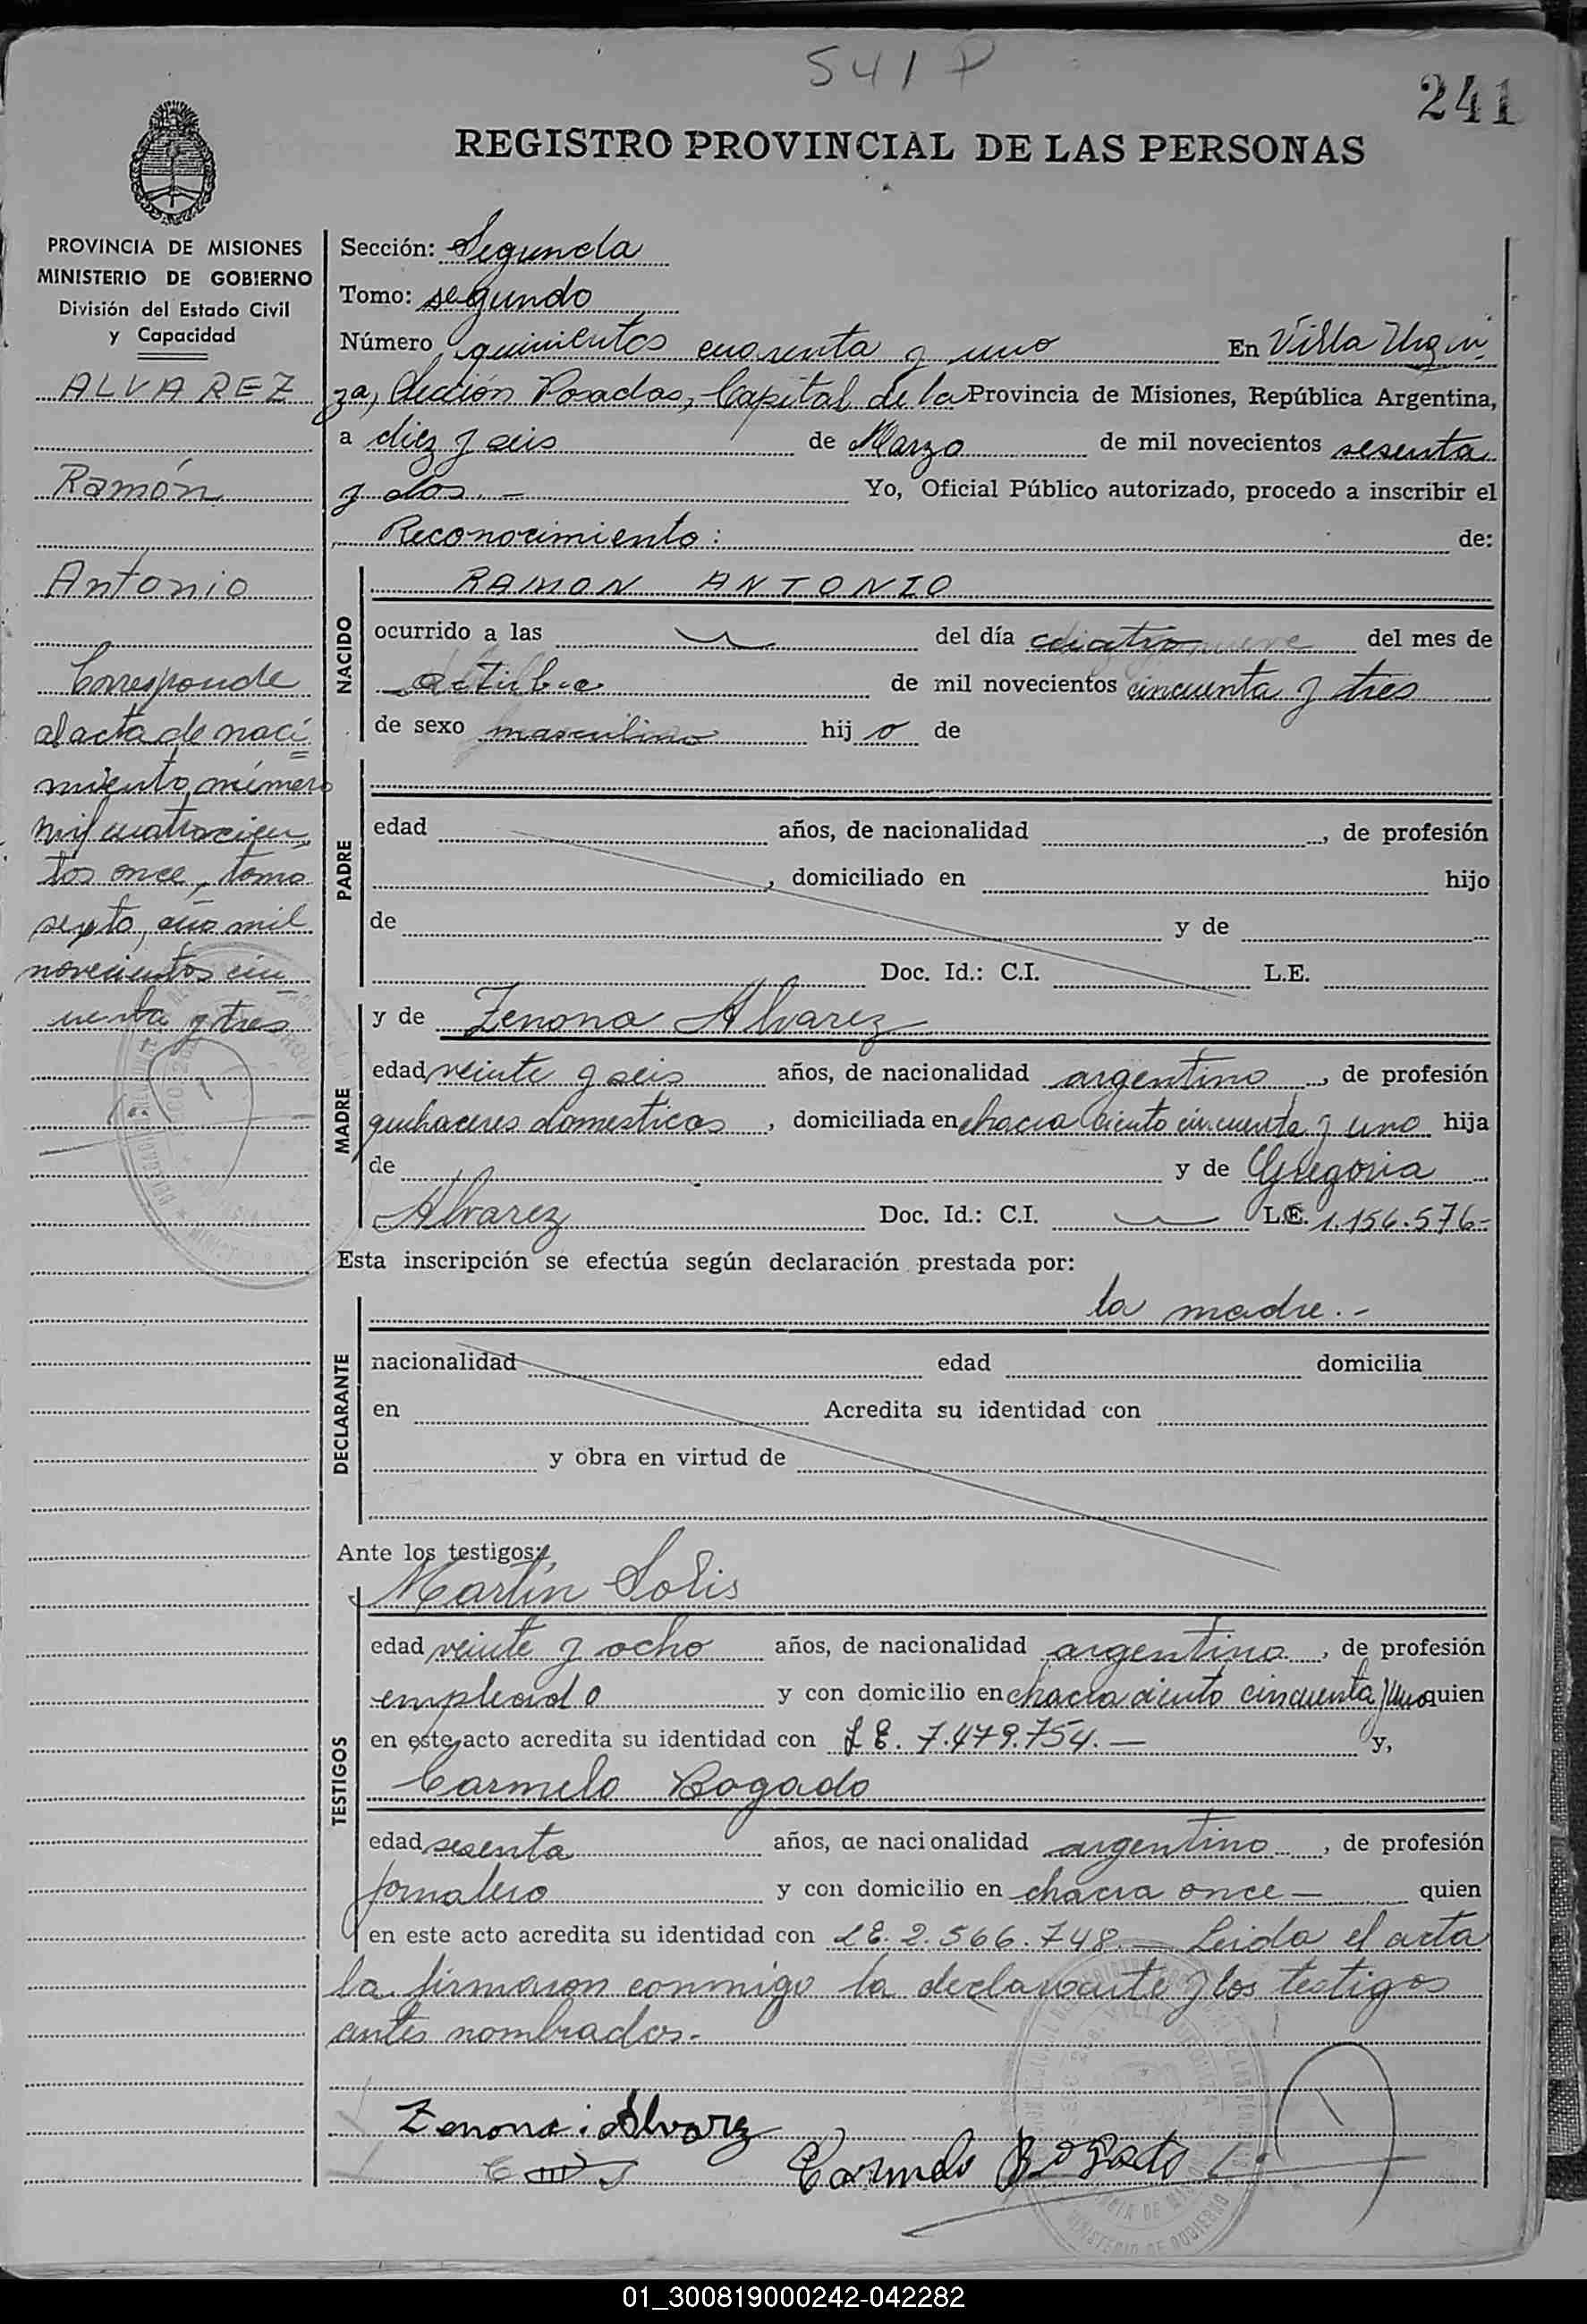 541 P
241
REGISTRO PROVINCIAL DE LAS PERSONAS
PROVINCIA DE MISIONES
MINISTERIO DE GOBIERNO
División del Estado Civil
y Capacidad
ALVAREZ
Ramón
Antonio
Corresponde
al acta de naci=
miento número
mil cuatrocien
tos once, tomo
sexto, año mil
novecientos cin
cuenta y tres
Sección: Segunda
Tomo: segundo
Número quinientos cuarenta y uno En Villa Urqui
za, Sección Posadas, Capital de la Provincia de Misiones, República Argentina,
a diez y seis de Marzo de mil novecientos sesenta
y dos.- Yo, Oficial Público autorizado, procedo a inscribir el
Reconocimiento: de:
NACIDO
RAMON ANTONIO
ocurrido a las del día cuatro del mes de
octubre de mil novecientos cincuenta y tres
de sexo masculino hijo de
PADRE
edad años, de nacionalidad , de profesión
, domiciliado en hijo
de y de
Doc. Id.: C.I. L.E.
MADRE
y de Zenona Alvarez
edad veinte y seis años, de nacionalidad argentina , de profesión
quehaceres domesticos , domiciliada en chacra ciento cincuenta y uno hija
de y de Gregoria
Alvarez Doc. Id.: C.I. L.C. 1.156.576-
Esta inscripción se efectúa según declaración prestada por:
la madre.-
DECLARANTE
nacionalidad edad domicilia
en Acredita su identidad con
y obra en virtud de
Ante los testigos:
TESTIGOS
Martín Solis
edad veinte y ocho años, de nacionalidad argentina , de profesión
empleado y con domicilio en chacra ciento cincuenta y uno quien
en este acto acredita su identidad con L E. 7.479.754.- y,
Carmelo Bogado
edad sesenta años, de nacionalidad argentino , de profesión
jornalero y con domicilio en chacra once - quien
en este acto acredita su identidad con L E. 2.566.748.- Leida el acta
la firmaron conmigo la declarante y los testigos
antes nombrados.-
Zenona Alvarez
Carmelo Bogado
01_300819000242-042282